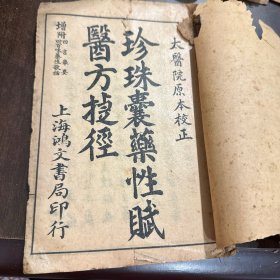 太醫院原本校正
珍珠囊藥性賦
醫方捷徑
增附
上海鴻文書局印行